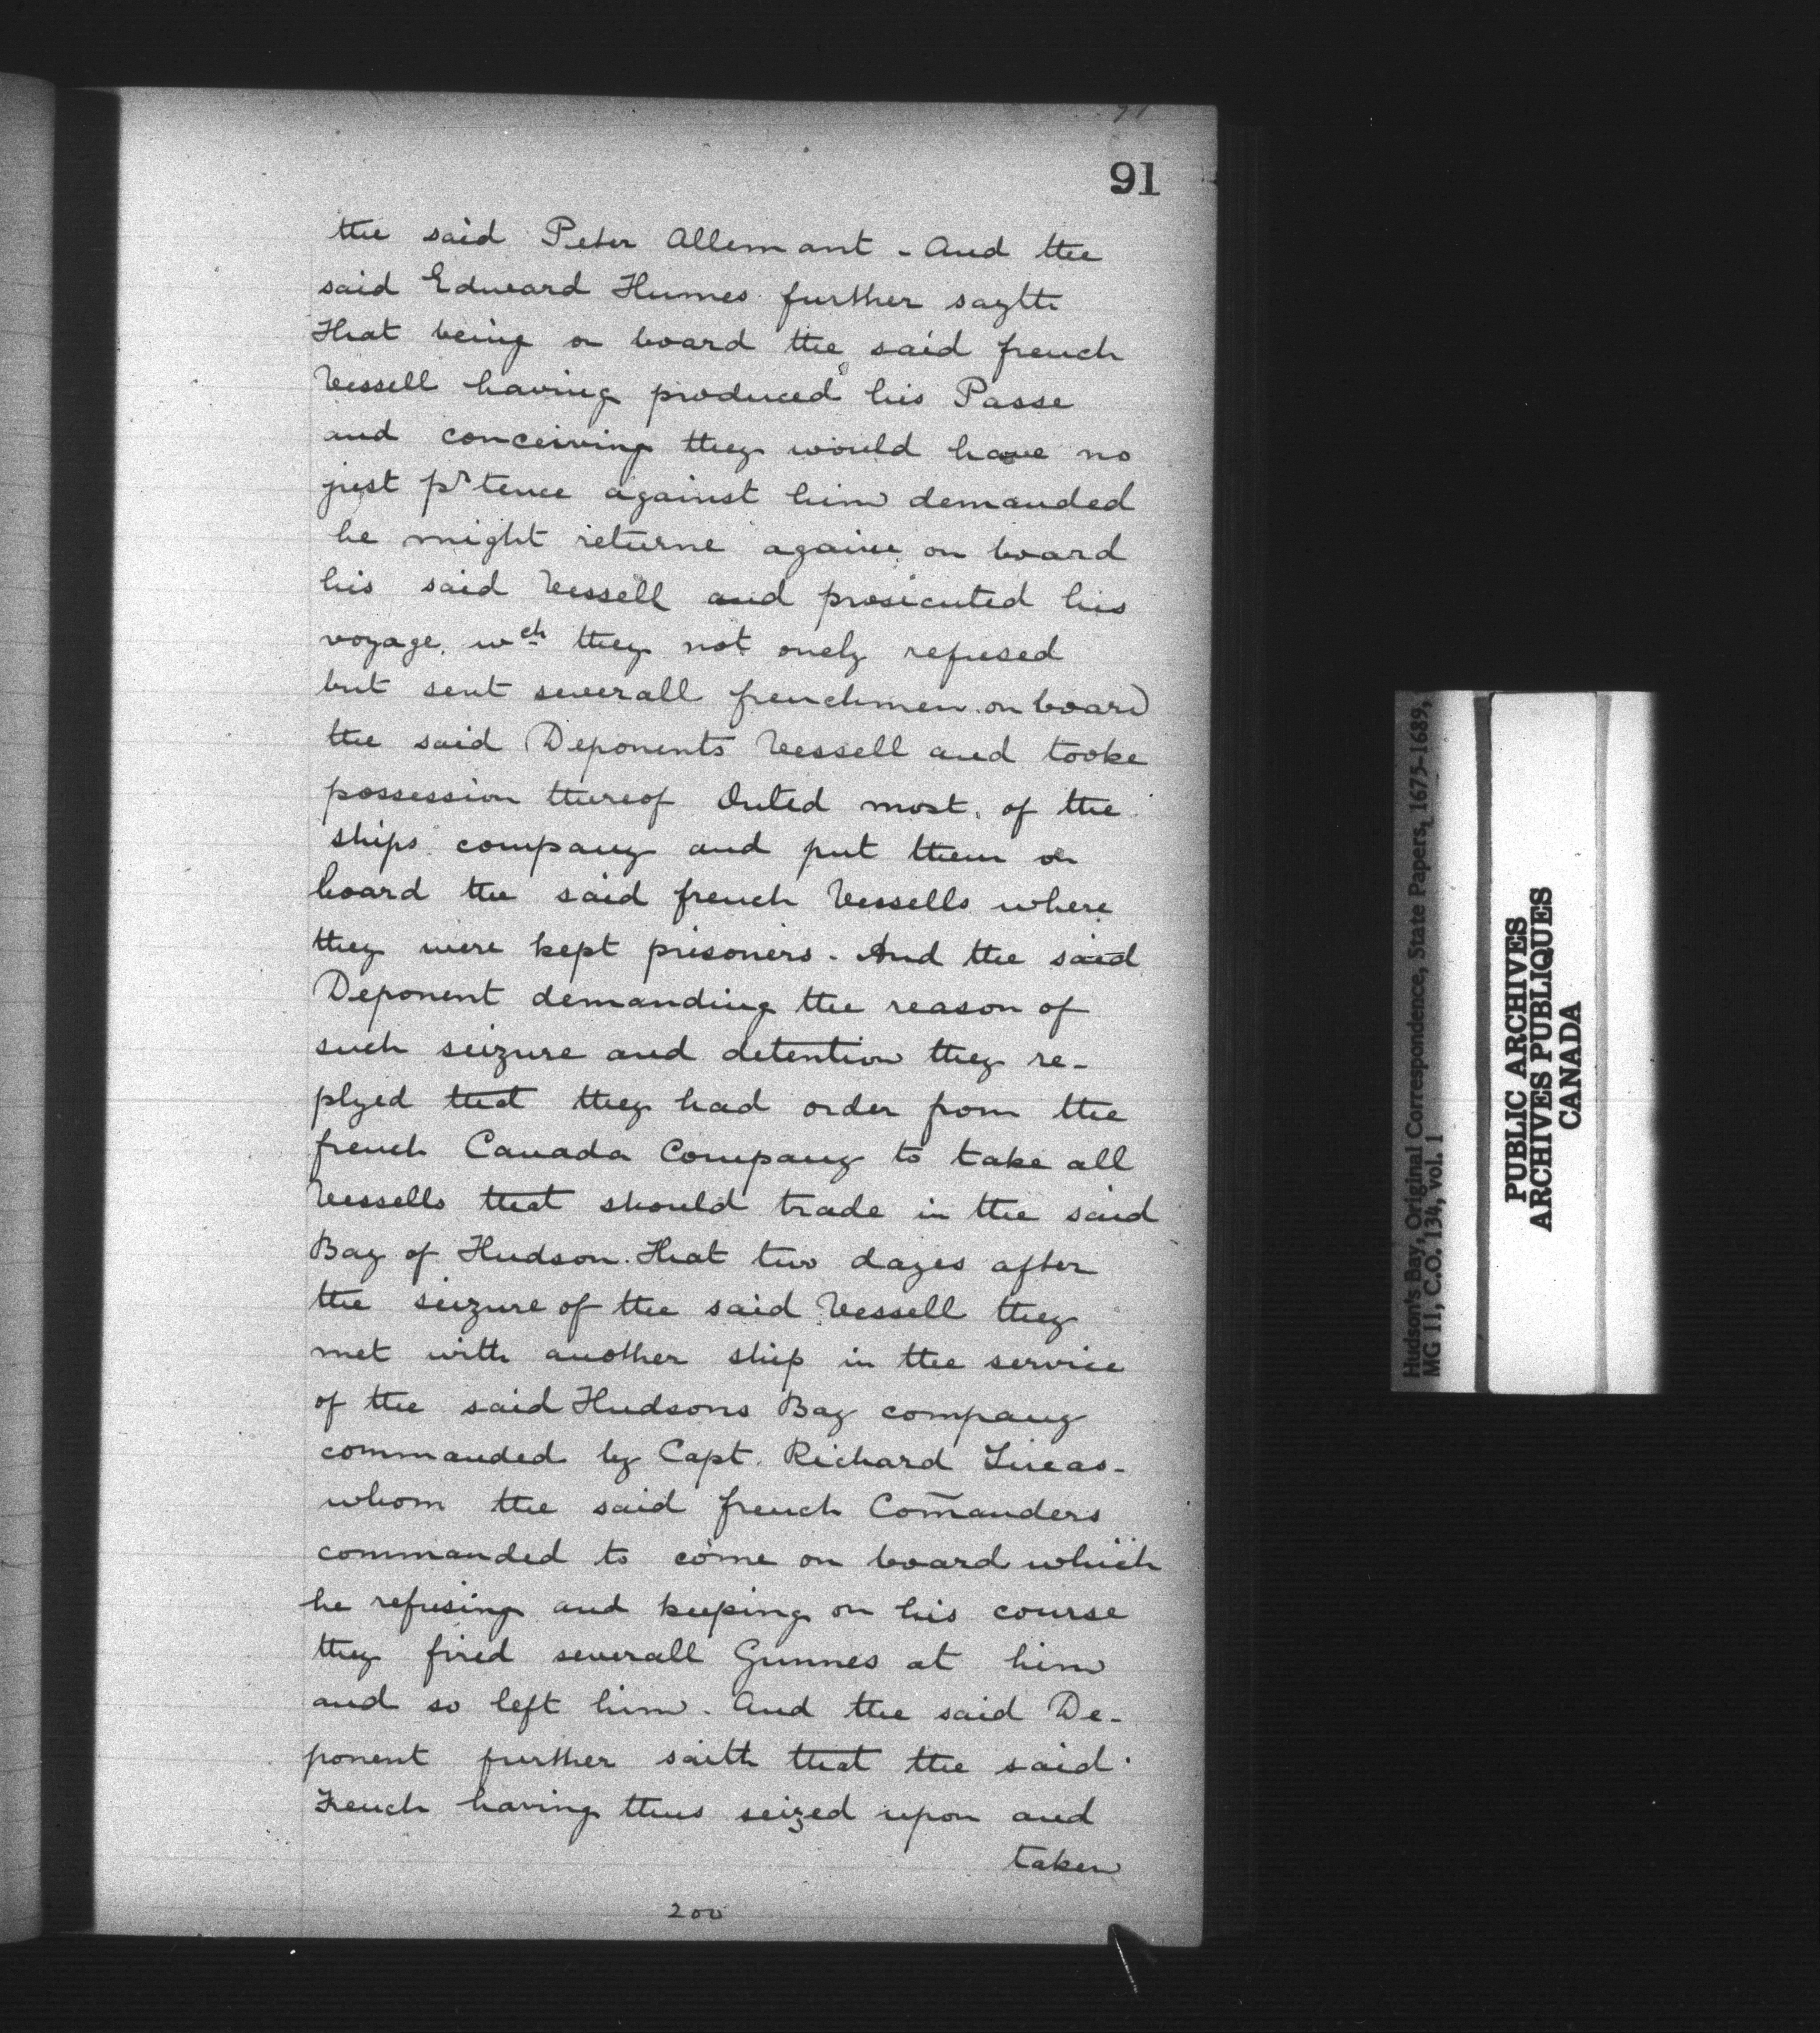 91
91
the said Peter Allemant - And the
said Edward Humes further sayth
That being on board the said french
Vessell having produced his Passe
and conceiving they would have no
just prtence against him demanded
he might returne againe on board
his said Vessell and prosecuted his
voyage. wch they not onely refused
but sent severall frenchmen on board
the said Deponents Vessell and tooke
possession thereof Outed most of the
ships company and put them on
board the said french Vessells where
they were kept prisoners. And the said
Deponent demanding the reason of
such seizure and detention they re-
plyed that they had order from the
french Canada Company to take all
Vessells that should trade in the said
Bay of Hudson. That two dayes after
the seizure of the said Vessell they
met with another ship in the service
of the said Hudsons Bay company
commanded by Capt. Richard Lucas-
whom the said french Com̄anders
commanded to come on board which
he refusing and keeping on his course
they fired severall Gunnes at him
and so left him. And the said De-
ponent further saith that the said
French having thus seized upon and
taken
200
Hudson's Bay, Original Correspondence, State Papers, 1675-1689,
MG 11, C.O. 134, vol. 1
PUBLIC ARCHIVES
ARCHIVES PUBLIQUES
CANADA